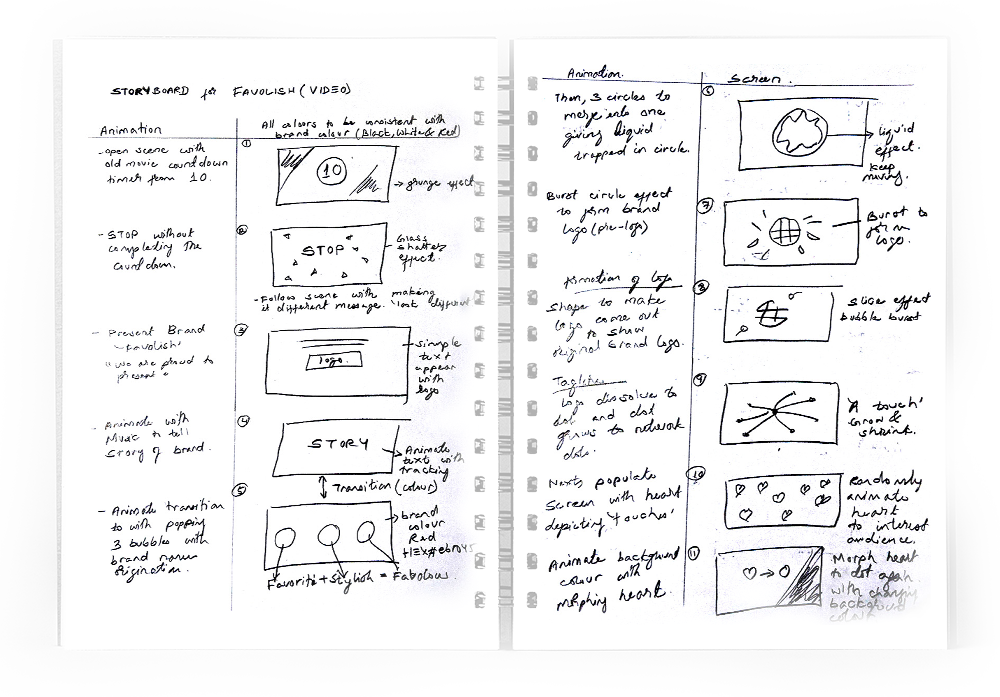 STORYBOARD for FAVOLISH (VIDEO)
Animation
All colours to be consistent with
brand colour (Black, White & Red)
- open scene with
old movie countdown
timer from 10.
①
10
→ grunge effect
- STOP without
completing the
countdown.
②
STOP
Glass
shatter
effect.
- Follow scene with making
it different message. last different
- Present Brand
"Favolish"
"we are proud to
present"
③
logo.
simple
text
appear
with
logo
- Animate with
Music to tell
story of brand.
④
STORY
Animate
text with
tracking
Transition (colour)
- Animate transition
to with popping
3 bubbles with
brand name
Origination.
⑤
brand
colour
Red
HEX#
Favorite + Stylish = Fabolous.
Animation.
Screen.
Then, 3 circles to
merge into one
giving liquid
trapped in circle.
⑥
liquid
effect.
keep
moving.
Burst circle effect
to form brand
logo (pre-logo)
⑦
Burst to
form
logo.
Animation of logo
Shape to make
logo come out
to show
original brand logo.
⑧
Slice effect
bubble burst
Tagline
Logo dissolve to
dot and dot
grows to network
dots.
⑨
'A touch'
Grow &
shrink.
Next, populate
Screen with heart
depicting 'touches'
⑩
Randomly
animate
heart
to interest
audience.
Animate background
colour with
morphing heart.
⑪
Morph heart
to dot again
with changing
background
colour